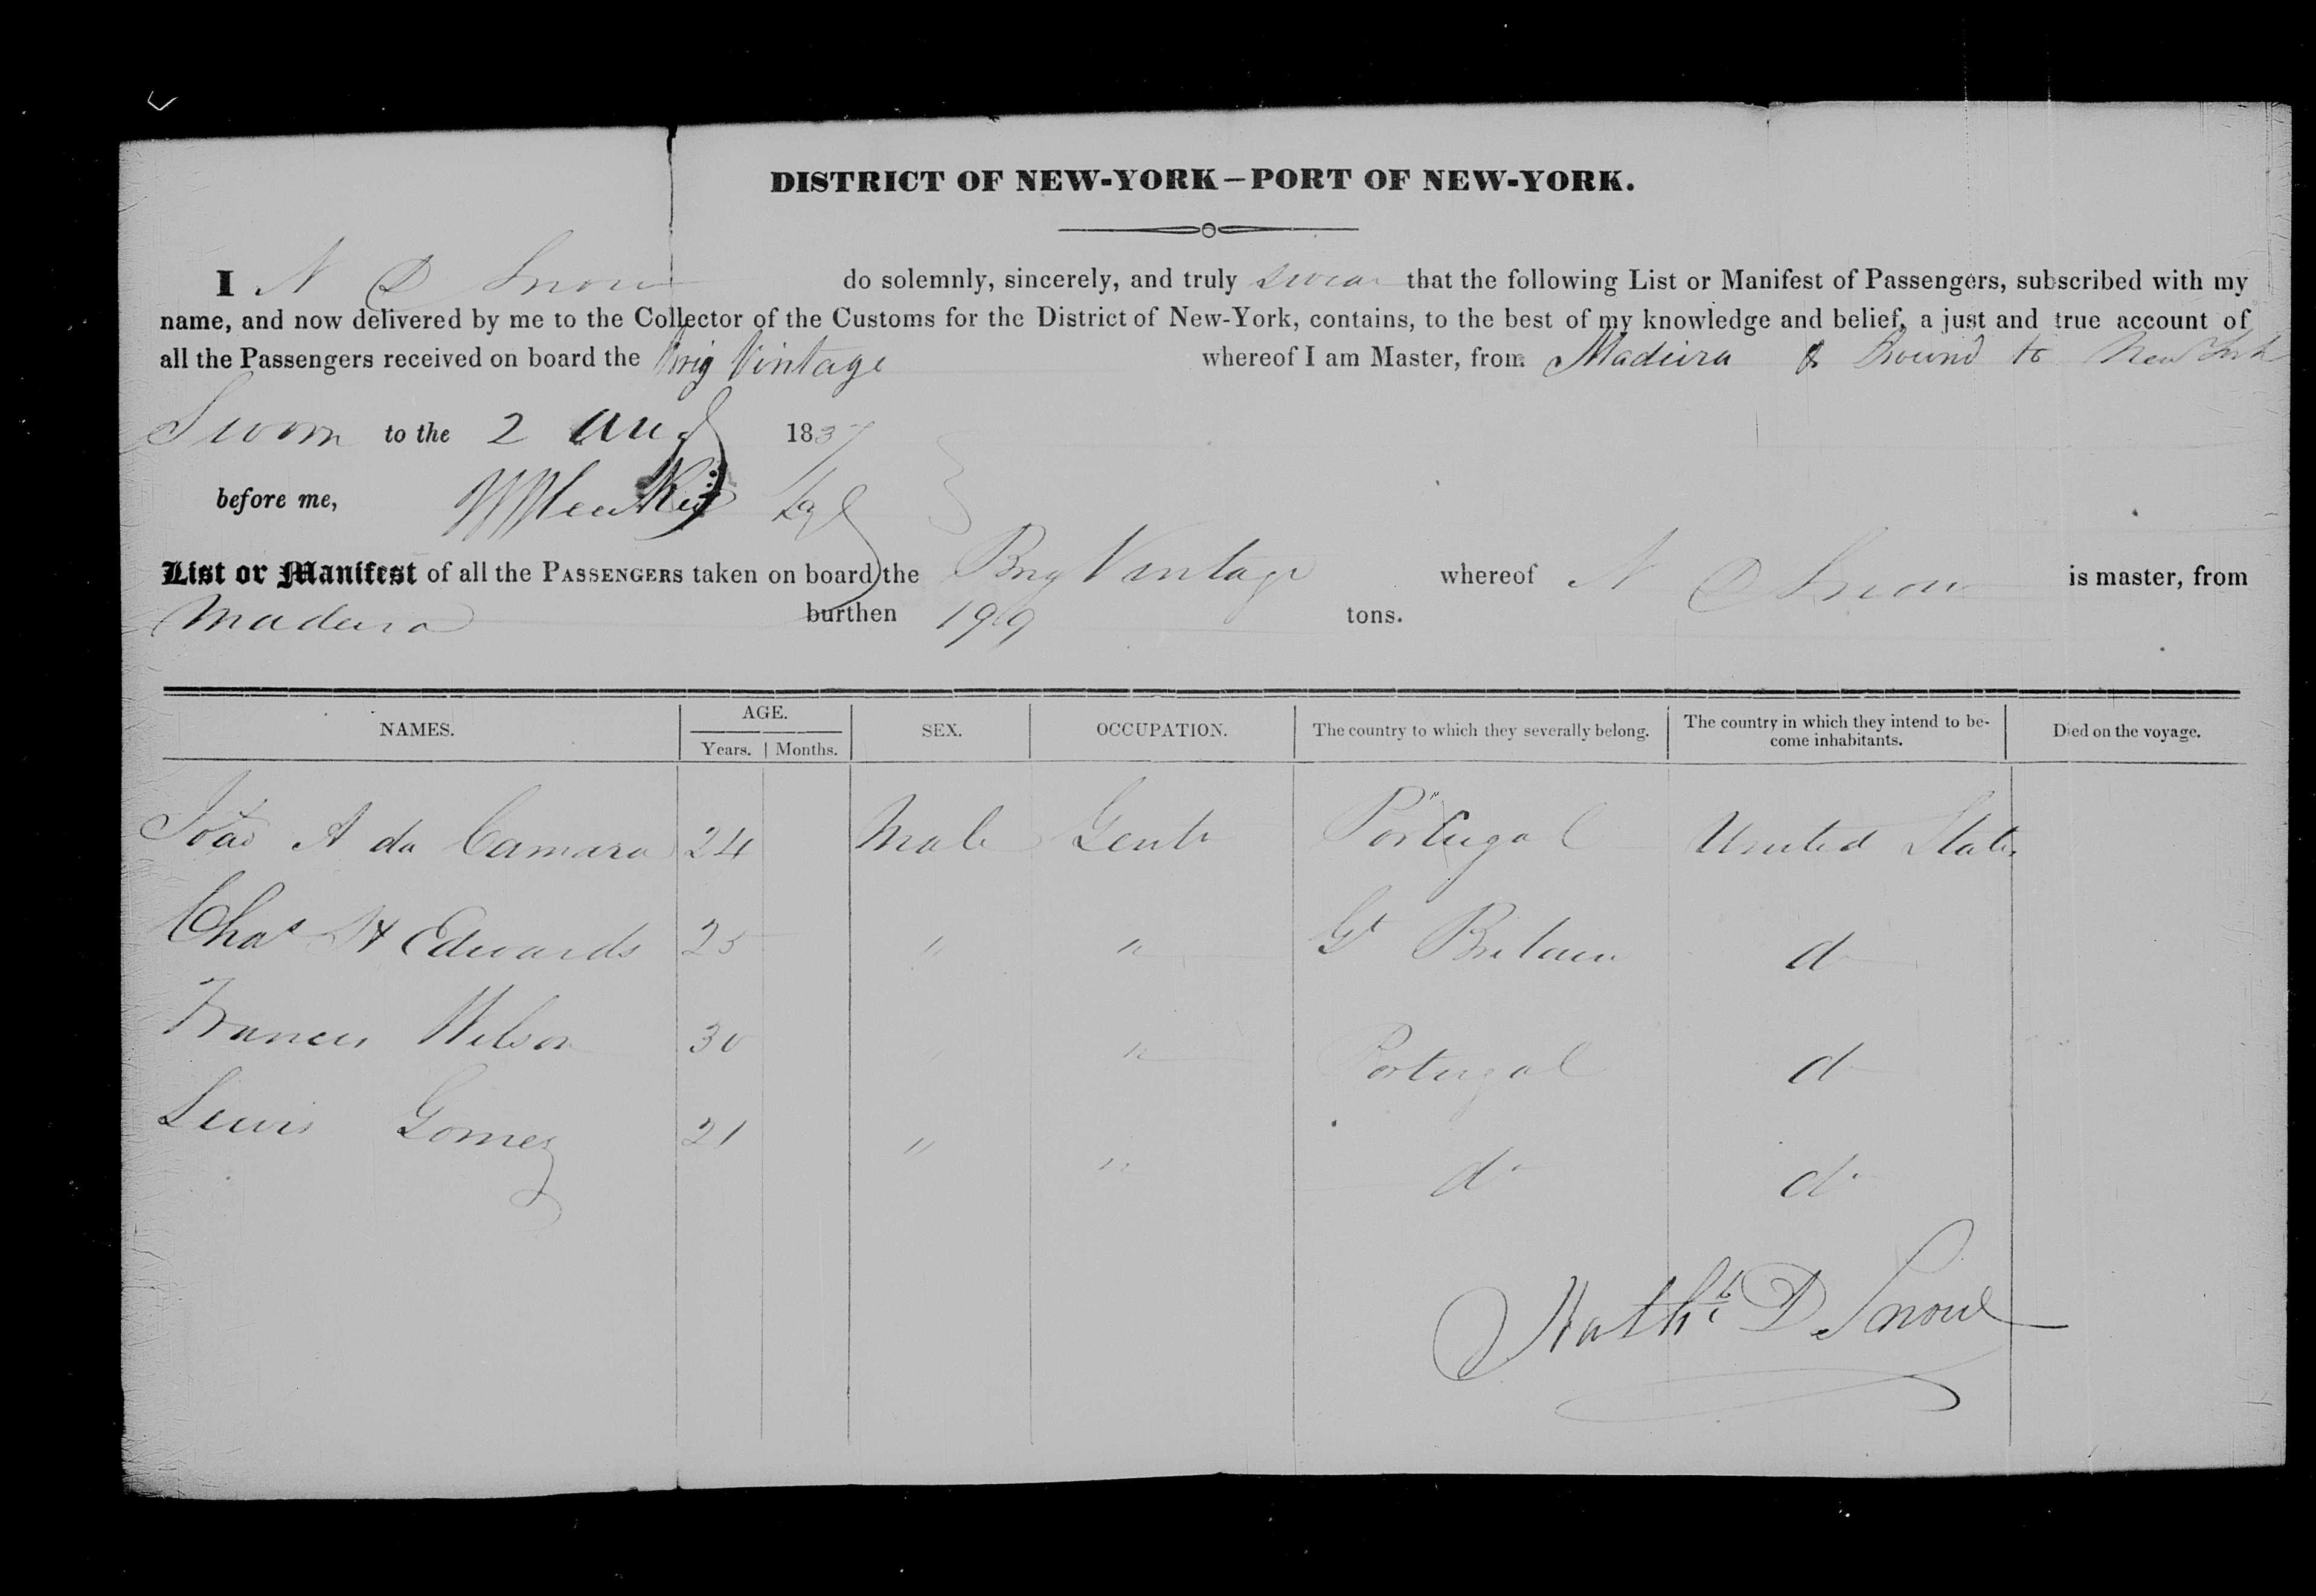 DISTRICT OF NEW-YORK—PORT OF NEW-YORK.
I N D Snow do solemnly, sincerely, and truly swear that the following List or Manifest of Passengers, subscribed with my
name, and now delivered by me to the Collector of the Customs for the District of New-York, contains, to the best of my knowledge and belief, a just and true account of
all the Passengers received on board the Brig Vintage whereof I am Master, from Madeira & Bound to New York
Sworn to the 2 Aug 1837
before me,
List or Manifest of all the PASSENGERS taken on board the Brig Vintage whereof N D Snow is master, from
Madeira burthen 199 tons.
NAMES. AGE. Years. Months. SEX. OCCUPATION. The country to which they severally belong. The country in which they intend to become inhabitants. Died on the voyage.
João A da Camara 24 Male Gentn Portugal United States
Chas H Edwards 25 " " Gt Britain do
Francis Wilson 30 " " Portugal do
Lewis Gomez 21 " " do do
Nathl D Snow